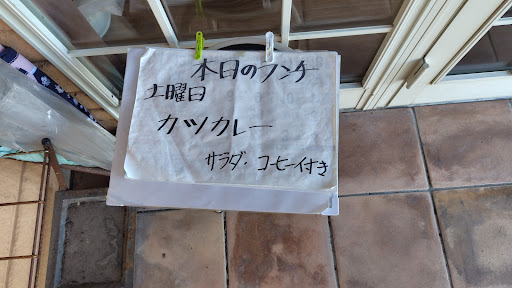 本日のランチ
土曜日
カツカレー
サラダ・コーヒー付き